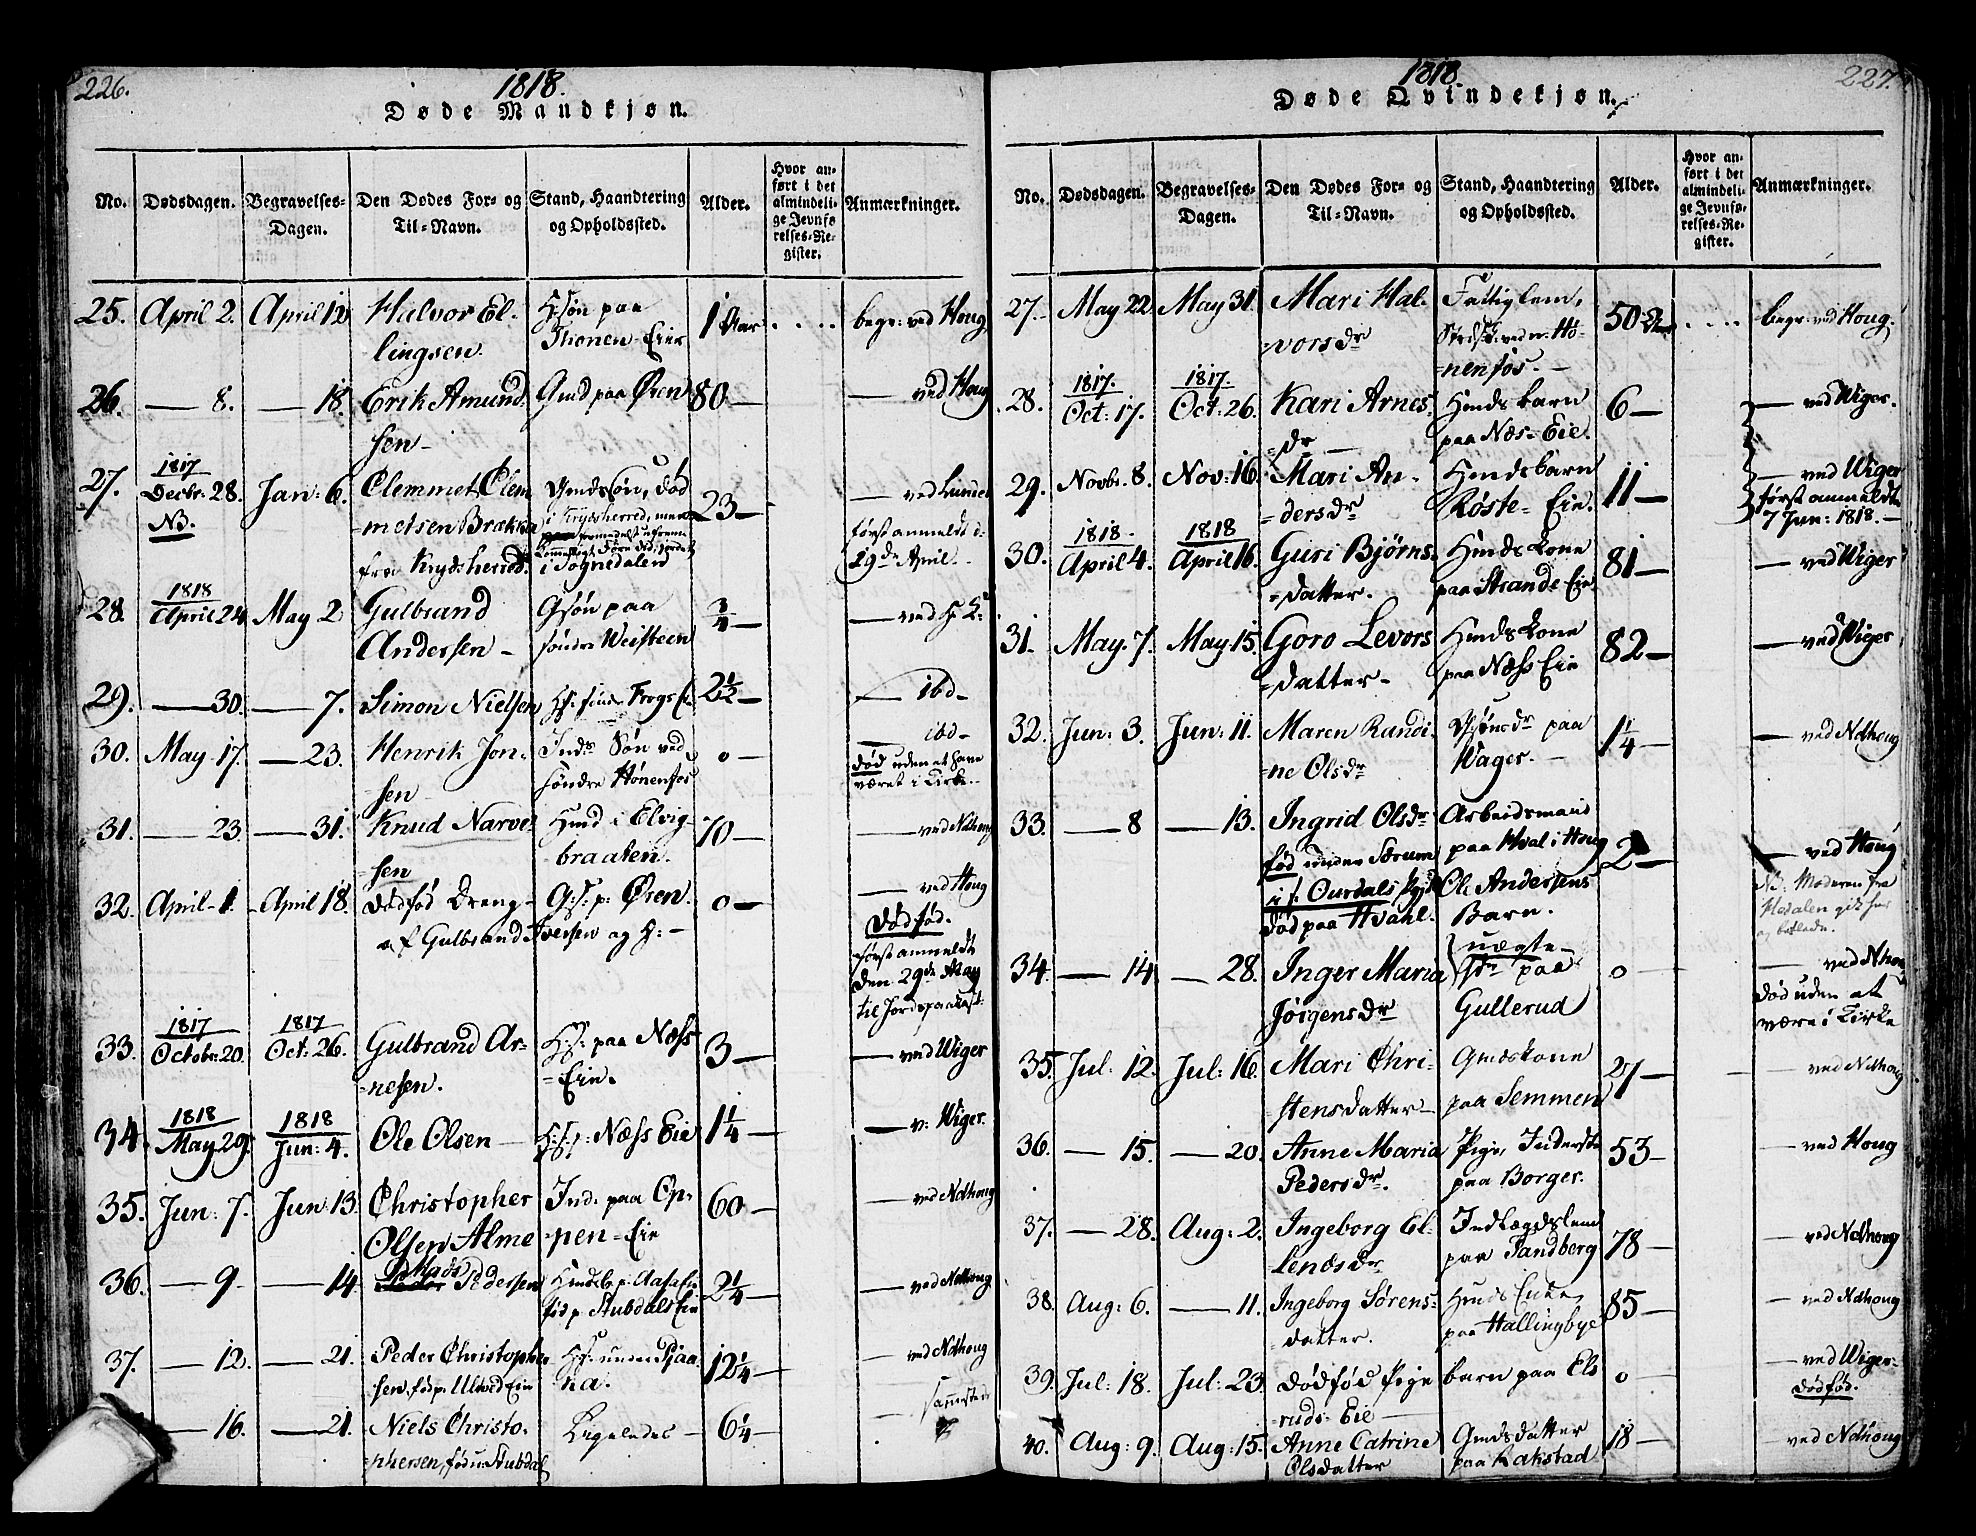 226.
1818.
Døde Mandkjøn.
No. Dødsdagen. Begravelses-Dagen. Den Dødes For- og Til-Navn. Stand, Haandtering og Opholdssted. Alder. Hvor anført i det almindelige Jevnførelses-Register. Anmærkninger.
25. April 2. April 12 Halvor El- H:søn paa 1 Aar . . . . begr: ved Houg.
lingsen. Eie
26. — 8. — 18. Erik Amund- Gmd paa Øren 80 — — ved Houg
sen —
27. 1817 Decbr: 28. Jan: 6. Clemmet Clem- død 23 — — ved Lunder
NB. metsen Brække i Krydsherred, først anmeldt d:
fra Krydsherred. i Sognedalen 29de April.
28. 1818 April 24 May 2 Gulbrand Gsøn paa 3/4 — — ved H: K:
Andersen — søndre Weisteen
29. — 30. — 7. Simon Nielsen Frogs Ei 2 1/2 — — ibd —
30. May 17. — 23. Henrik Jon- Inds Søn ved 0 — — ibd —
sen søndre Hønenfos død uden at have
været i Kirke. —
31. — 23 — 31. Knud Narve- Hmd i Elvig- 70 — — ved Ndhoug
sen braaten.
32. April 1. April 18. Dødfød Dreng — G:s: p: Øren. 0 — — ved Houg
af Gulbrand Iversen og H: — Dødfød.
først anmeldt
den 29de May
til Jordspaakast:
33. 1817 Octobr: 20. 1817 Oct: 26. Gulbrand Ar- H:s: paa Næss 3 — — ved Wiger
nesen. -Eie.
34. 1818 May 29. 1818 Jun: 4. Ole Olsen — H:s: p: Næss Eie 1 1/4 — — v: Wiger.
35. Jun: 7. Jun: 13. Christopher Ind: paa Op- 60 — — ved Ndhoug
Olsen Alme pen- Eie
36. — 9. — 14 Mads Pedersen 2 1/4 — — ved Ndhoug
fød p. Stubdals Eie
37. — 12. — 21. Peder Christopher- Hs: under Pjaa- 12 1/4 — — ved Ndhoug
sen, fød p: Ulved Eie ka.
— 16. — 21. Niels Christo- Ligeledes — 6 1/4 — — sammesteds
phersen, fød u: Stubdal
227.
1818.
Døde Qvindekjøn.
No. Dødsdagen. Begravelses-Dagen. Den Dødes For- og Til-Navn. Stand, Haandtering og Opholdssted. Alder. Hvor anført i det almindelige Jevnførelses-Register. Anmærkninger.
27. May 22. May 31. Mari Hal- Fattiglem, 50 Aar . . . . begr: ved Houg.
vorsdr ved nr. Hø-
nenfos. —
28. 1817. Oct: 17. 1817. Oct: 26. Kari Arnes- Hmds barn 6 — — ved Wiger.
dr — paa Næs- Eie.
29. Novbr: 8. Nov: 16. Mari An- Hmds barn 11 — — ved Wiger
dersdr Røste- Eie. først anmeldt
7 Jun: 1818. —
30. 1818. April 4. 1818 April 16. Guri Bjørns- Hmds kone 81 — — ved Wiger
datter. paa Strande Eie
31. May. 7. May 15. Goro Levors Hmds kone 82 — — ved Wiger
datter — paa Næss Eie
32. Jun: 3. Jun: 11. Maren Randi- dr paa 1 1/4 — — ved Ndhoug
ne Olsdr Wager. —
33. — 8 — 13. Ingrid Olsdr Arbeidsmand 2 — — ved Houg
fød under Sørum paa Hval i Houg NB. Moderen fra
i s: Ourdals Pgjld Ole Andersens Hedalen gik her
død paa Hvahl. Barn. og betlede.
34. — 14 — 28. Inger Maria uægte — 0 — ved Ndhoug
Jørgensdr dr paa død uden at
Gullerud være i Kirke
35. Jul: 12. Jul: 16. Mari Chri- Gmdskone 27 — — ved Ndhoug
stensdatter — paa Semmen
36. — 15. — 20. Anne Maria Pige, Inderste 53 — — ved Houg
Pedersdr. paa Borger.
37. — 28. Aug: 2. Ingeborg El- Indlægdslem 78 — — ved Ndhoug
lensdr paa Sandberg
38. Aug: 6. — 11. Ingeborg Sørens- Hmds Enke 85 — — ved Ndhoug
datter. paa Hallingbye
39. Jul: 18. Jul: 23. Dødfød Pige barn paa Els 0 — — ved Wiger —
ruds- Eie — dødfød.
40. Aug: 9. Aug: 15. Anne Catrine Gmdsdatter 18 — — ved Ndhoug
Olsdatter paa Rakstad